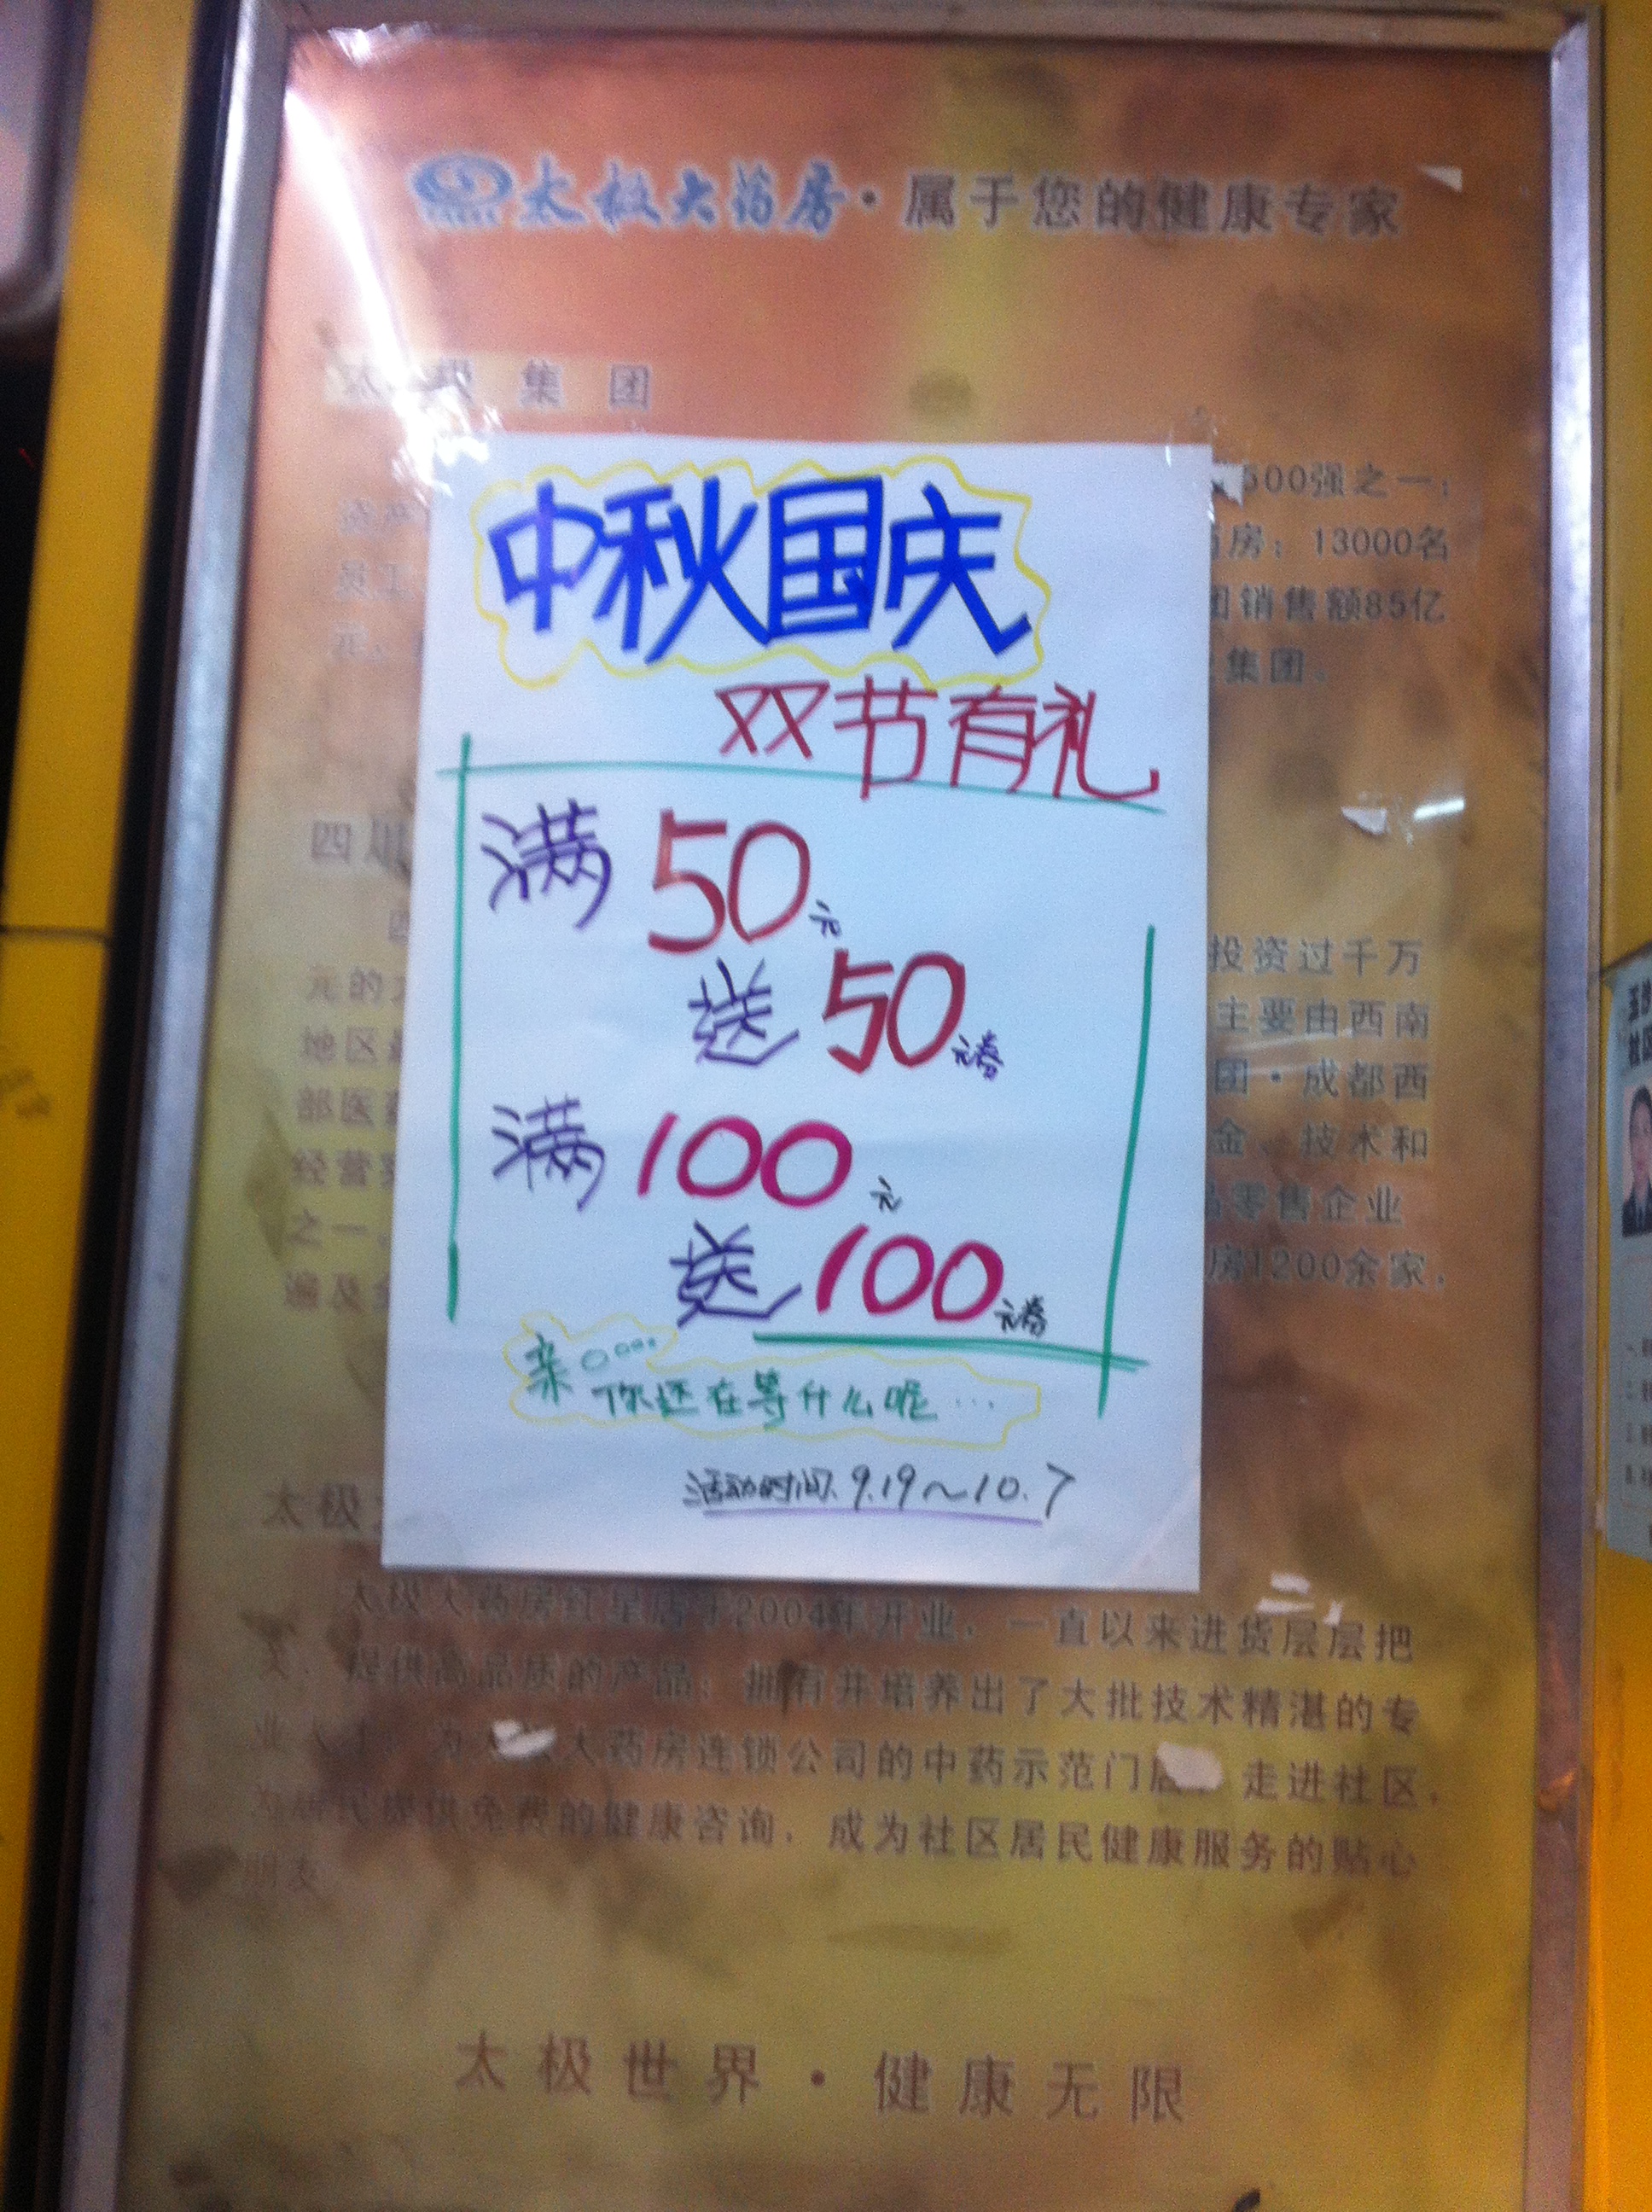 太极大药房·属于您的健康专家
集团
500强之一;
药房;13000名
员工
团销售额85亿
集团。
中秋国庆
双节有礼
满50元
送50元券
满100元
送100元券
亲
你还在等什么呢…
活动时间.9.19~10.7
四川
投资过千万
元的
主要由西南
地区
团·成都西
部医
金、技术和
经营
零售企业
之一
房1200余家,
遍及
太极
太极大药房红星店于2004年开业,一直以来进货层层把
关,提供高品质的产品;拥有并培养出了大批技术精湛的专
大药房连锁公司的中药示范门店。走进社区,
居民提供免费的健康咨询,成为社区居民健康服务的贴心
朋友
太极世界·健康无限